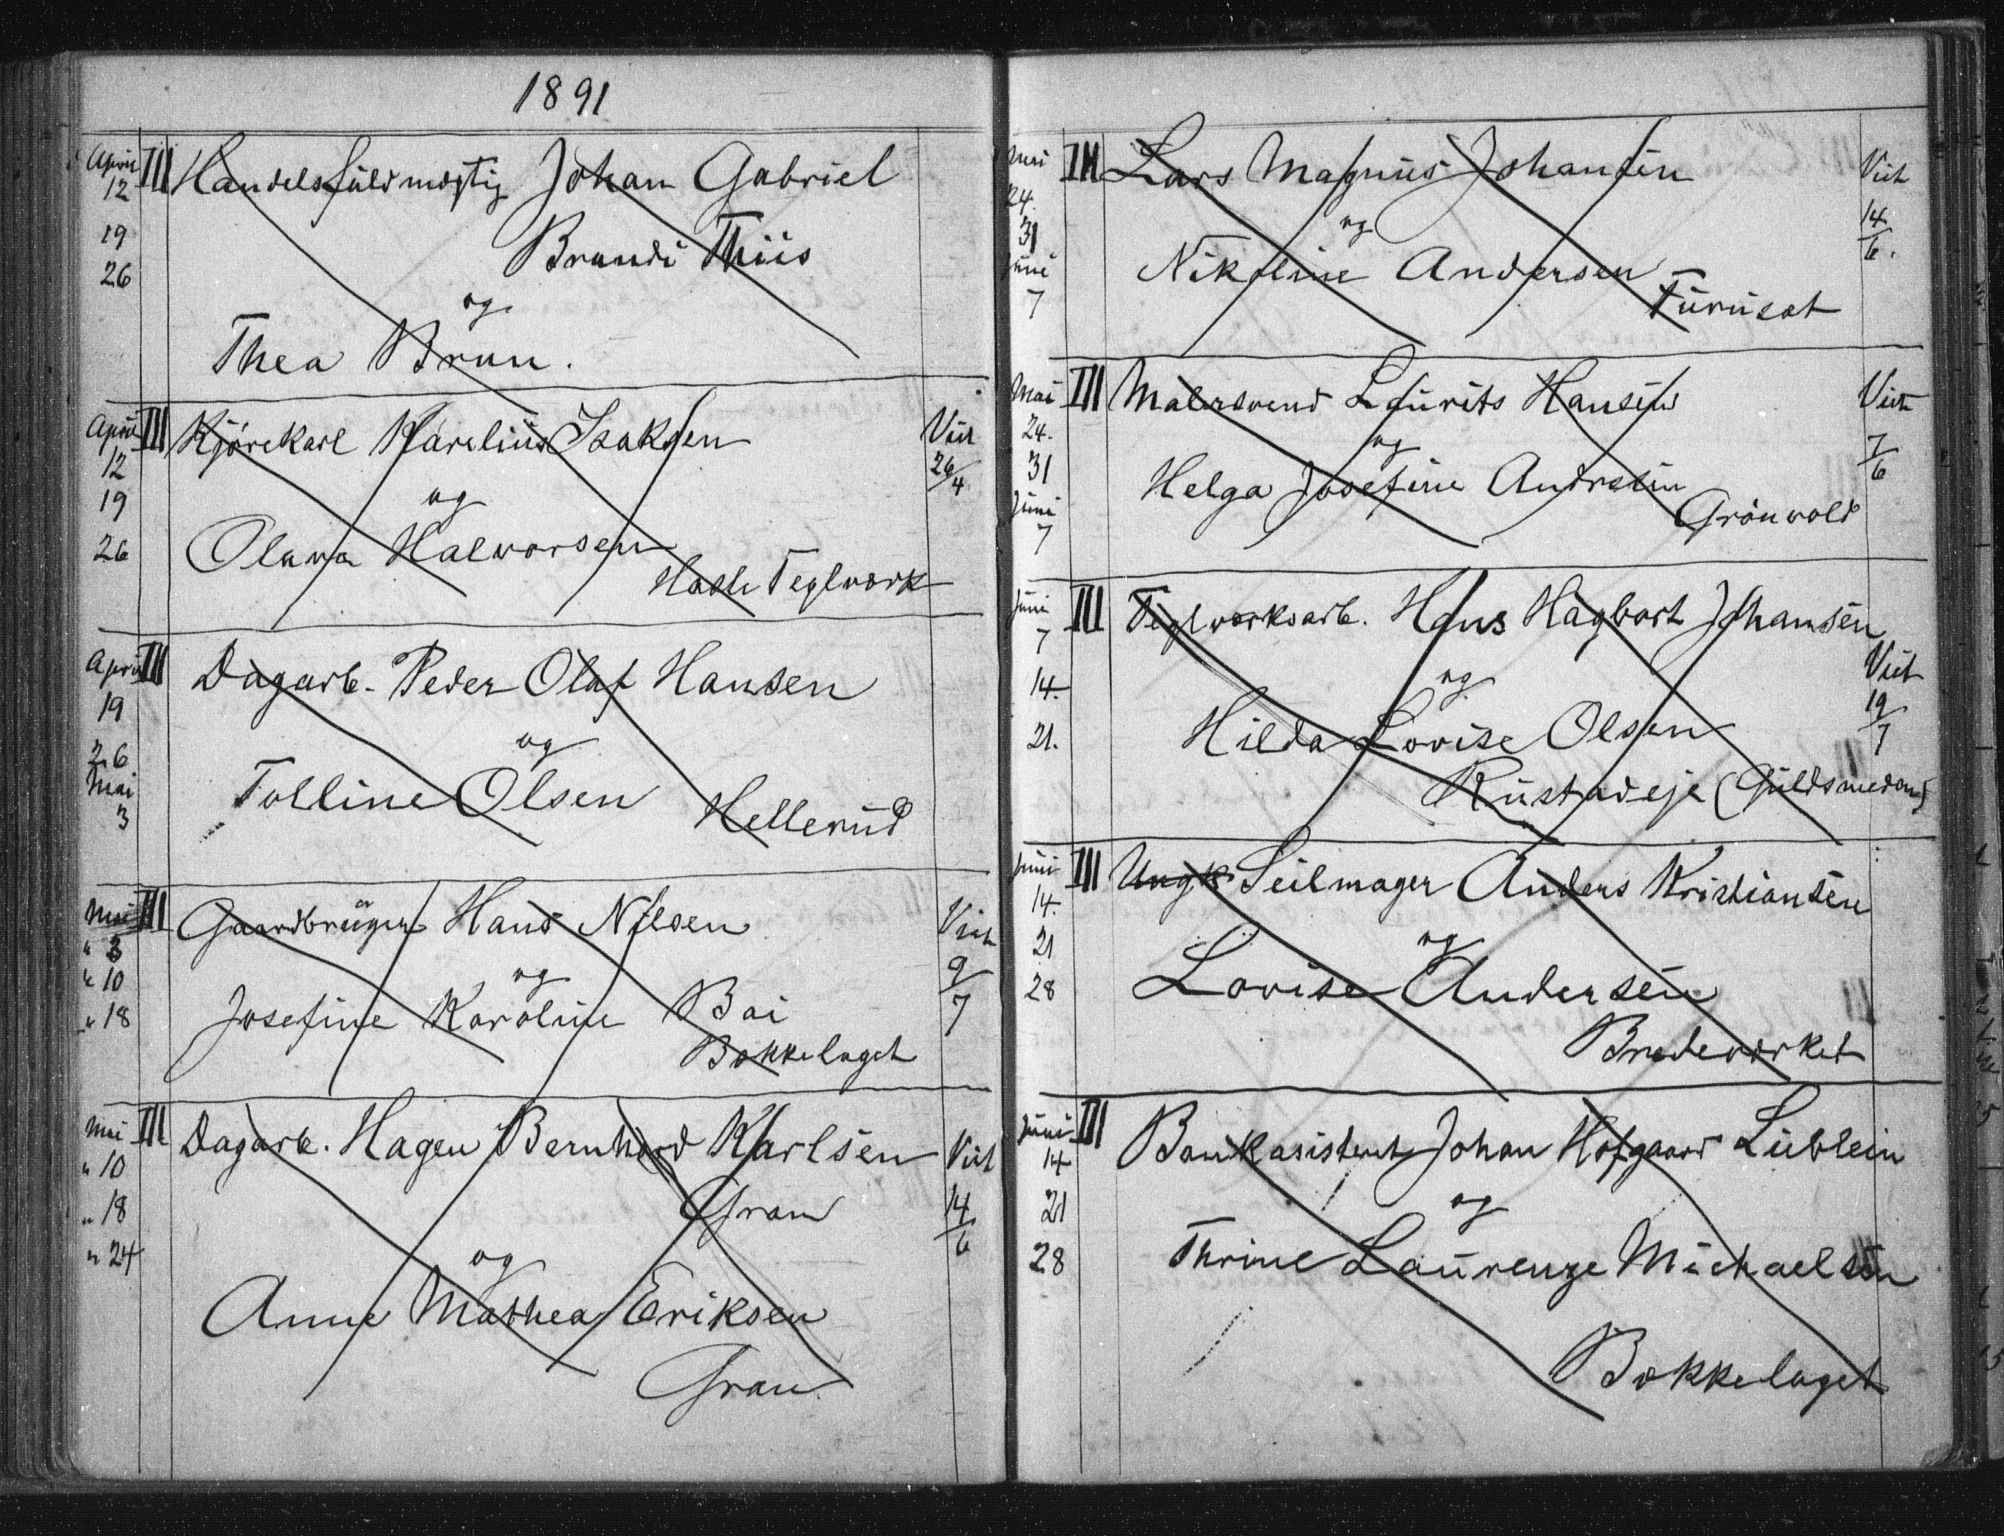 1891
April III Handelsfuldmægtig Johan Gabriel
12
19 Brandi Thiis
26
og
Thea Brun.
April III Kjørekarl Karelius Isaksen Viet
12 26/4
19 og
26 Olava Halvorsen
Hasle Teglværk
April III Dagarb. Peder Olaf Hansen
19
26 og
Mai Tolline Olsen
3 Hellerud
Mai III Gaardbruger Hans Nilsen Viet
" 3 9/7
" 10 og
" 18 Josefine Karoline Boi
Bækkelaget
Mai III Dagarb. Hagen Bernhard Karlsen Viet
" 10
" 18 Gran 14/6
" 24 og
Anne Mathea Eriksen
Gran
Mai III Lars Magnus Johansen Viet
24. 14/6.
31 og
Juni Nikoline Andersen
7 Furuset
Mai III Malersvend Laurits Hansen Viet
24. og 7/6
31 Helga Josefine Andersen
Juni Grönvold
7
Juni III Teglværksarb. Hans Hagbart Johansen
7 Viet
14. og 19/7
21. Hilda Lovise Olsen
Rustadeje (Guldsmeden)
Juni III Ungk. Seilmager Anders Kristiansen
14.
21 og
28 Lovise Andersen
Bredeværket
Juni III Bankasistent Johan Hofgaard Lieblein
14
21 og
28 Thrine Laurenze Michaelsen
Bækkelaget